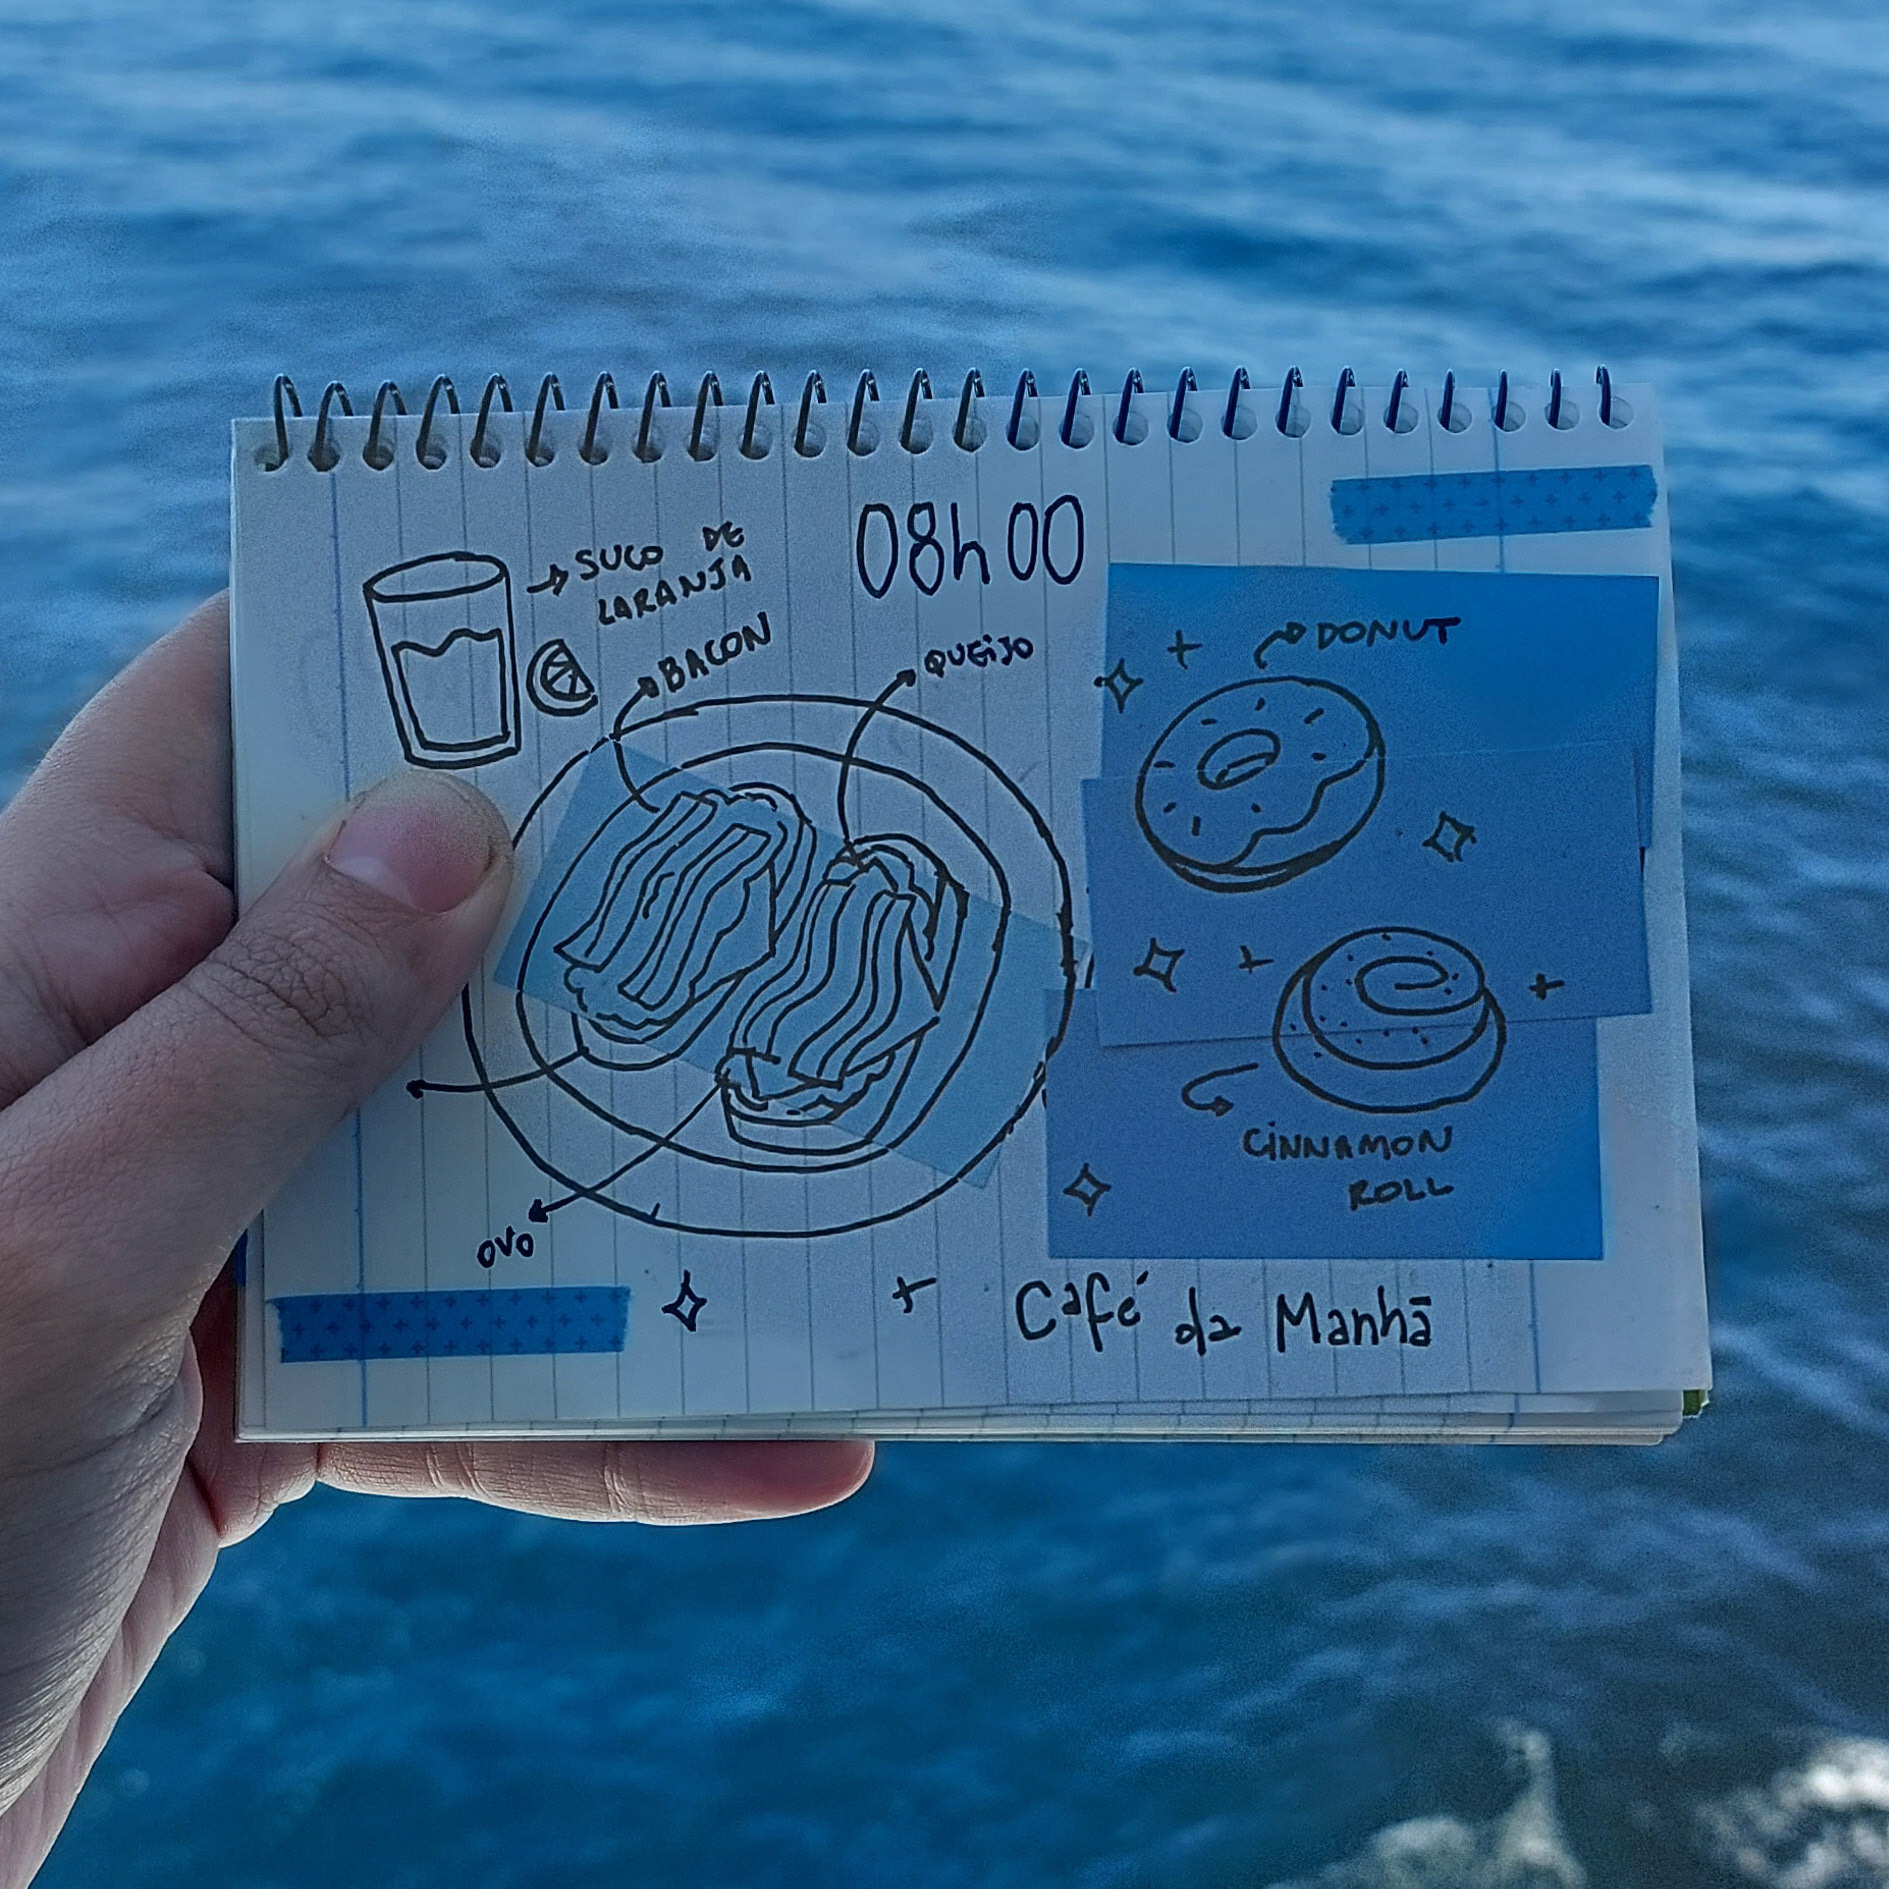 08h00
SUCO DE
LARANJA
BACON
QUEIJO
DONUT
CINNAMON
ROLL
OVO
Café da Manhã